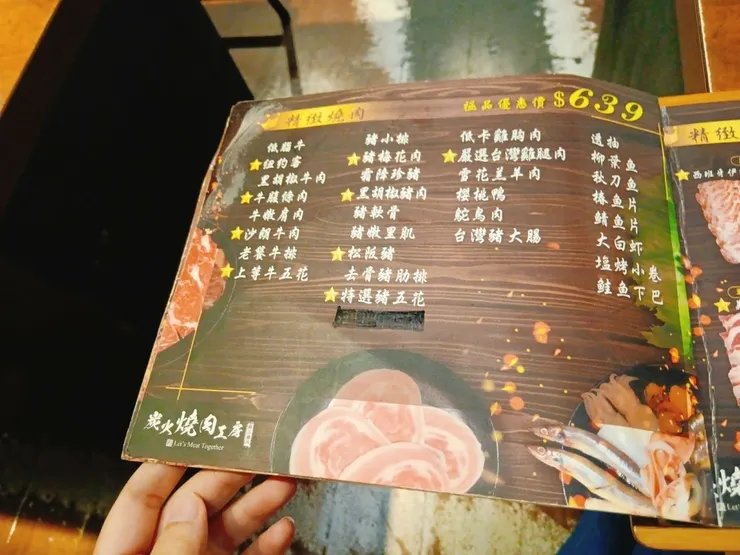 精緻燒肉
極品優惠價 $639
低脂牛
紐約客
黑胡椒牛肉
牛腹條肉
牛嫩肩肉
沙朗牛肉
老饕牛排
上等牛五花
豬小排
豬梅花肉
霜降珍豬
黑胡椒豬肉
豬軟骨
豬嫩里肌
松阪豬
去骨豬肋排
特選豬五花
低卡雞胸肉
嚴選台灣雞腿肉
雪花羔羊肉
櫻桃鴨
鴕鳥肉
台灣豬大腸
透抽
柳葉魚
秋刀魚
椿魚片
鯖魚片
大白蝦
塩烤小卷
鮭魚下巴
炭火燒肉工房
Let's Meat Together
精緻
西班牙伊
燒